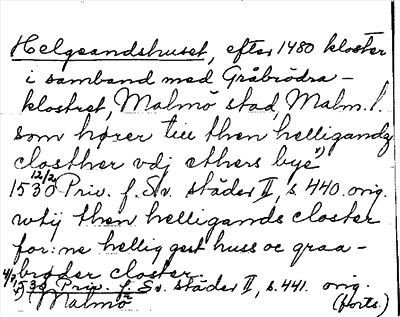 Helgeandshuset, efter 1480 kloster
i samband med Gråbrödra-
klostret, Malmö stad, Malm. l.
som hører till then helligandz
closther vdj ethers bye¹⁾
12/2 1530 Priv. f. Sv. städer II, s. 440. orig.
wtij then helligands closter
for:ne hellig gest huss oc graa-
brøder closter
4/7 1530 Priv. f. Sv. städer II, s. 441. orig.
¹⁾ Malmö (forts.)